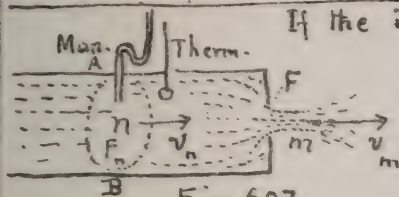 If the i
Man. Therm.
A
F
n
Fₙ vₙ m vₘ
B
Fig. 607